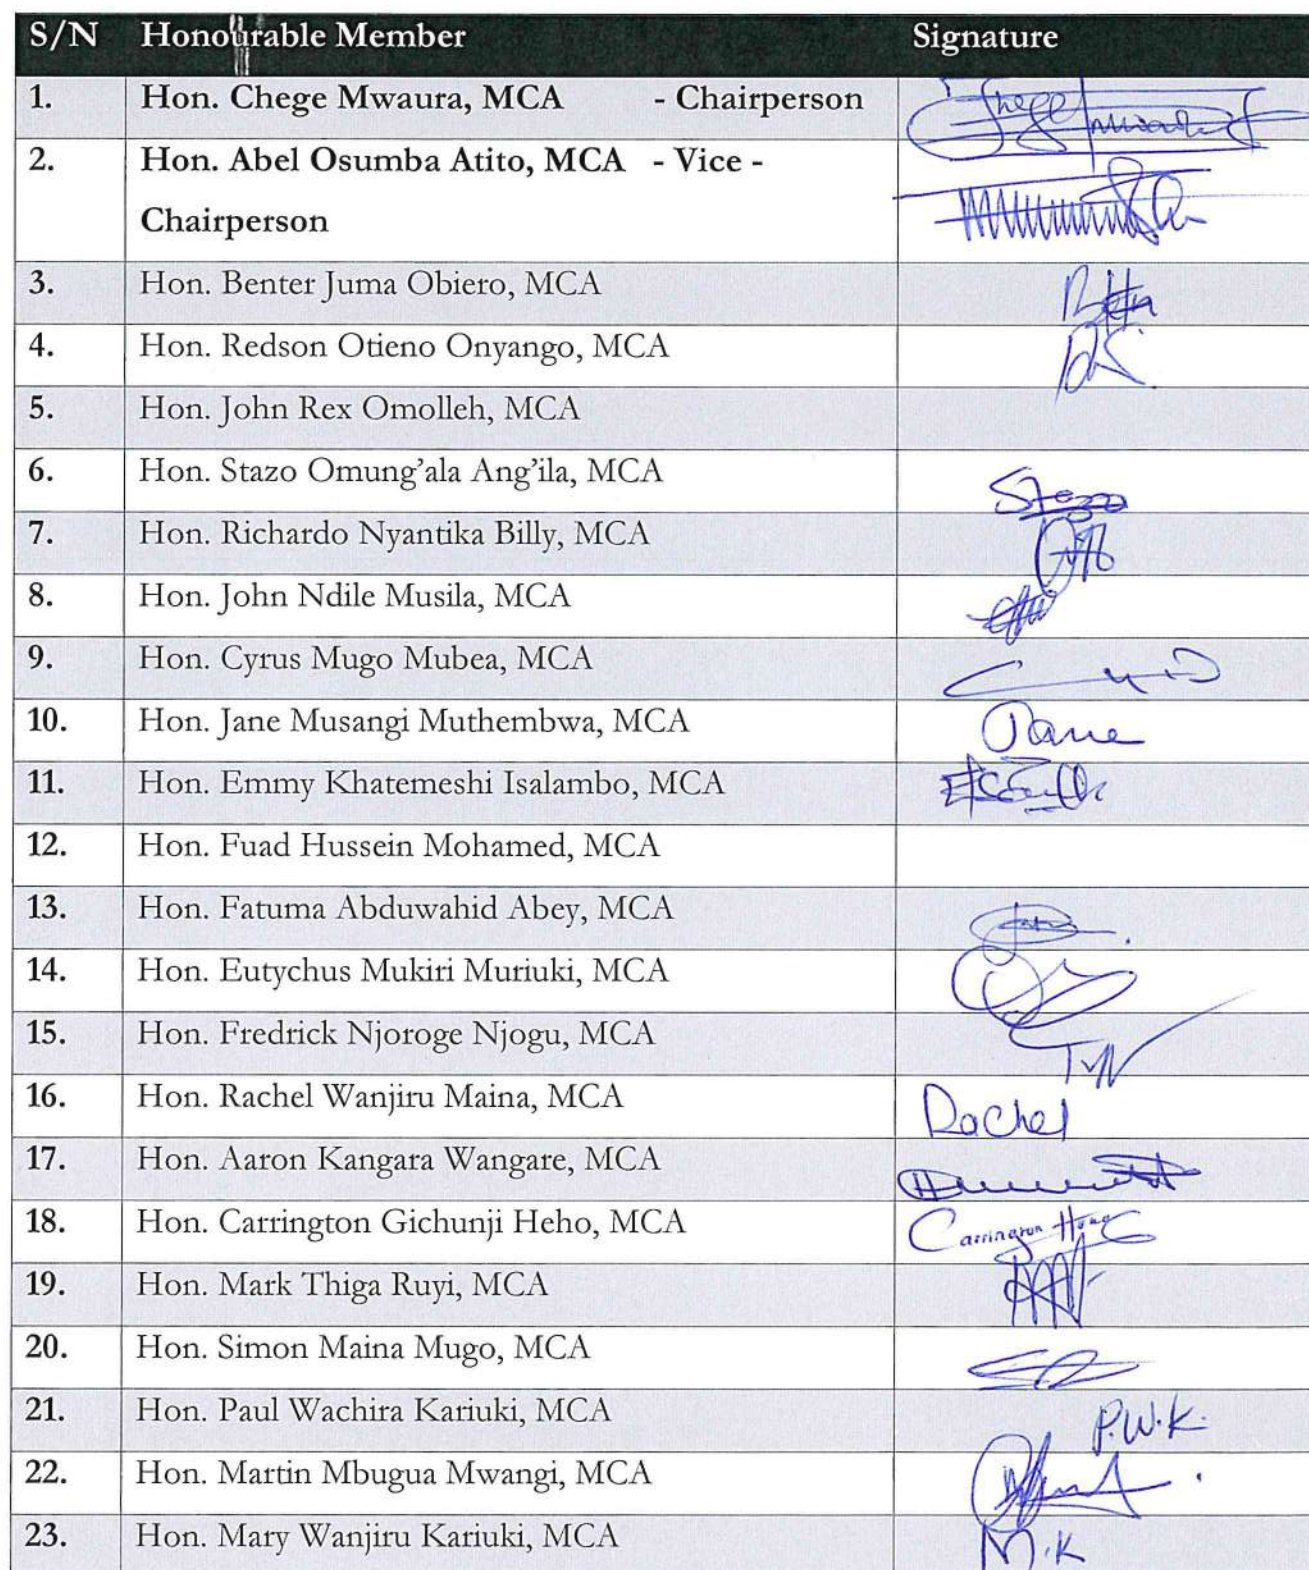 S/N Honourable Member Signature
1. Hon. Chege Mwaura, MCA - Chairperson
2. Hon. Abel Osumba Atito, MCA - Vice -
Chairperson
3. Hon. Benter Juma Obiero, MCA
4. Hon. Redson Otieno Onyango, MCA
5. Hon. John Rex Omolleh, MCA
6. Hon. Stazo Omung’ala Ang’ila, MCA
7. Hon. Richardo Nyantika Billy, MCA
8. Hon. John Ndile Musila, MCA
9. Hon. Cyrus Mugo Mubea, MCA
10. Hon. Jane Musangi Muthembwa, MCA Jane
11. Hon. Emmy Khatemeshi Isalambo, MCA
12. Hon. Fuad Hussein Mohamed, MCA
13. Hon. Fatuma Abduwahid Abey, MCA
14. Hon. Eutychus Mukiri Muriuki, MCA
15. Hon. Fredrick Njoroge Njogu, MCA
16. Hon. Rachel Wanjiru Maina, MCA Rachel
17. Hon. Aaron Kangara Wangare, MCA
18. Hon. Carrington Gichunji Heho, MCA Carrington
19. Hon. Mark Thiga Ruyi, MCA
20. Hon. Simon Maina Mugo, MCA
21. Hon. Paul Wachira Kariuki, MCA P.W.K.
22. Hon. Martin Mbugua Mwangi, MCA
23. Hon. Mary Wanjiru Kariuki, MCA M.K